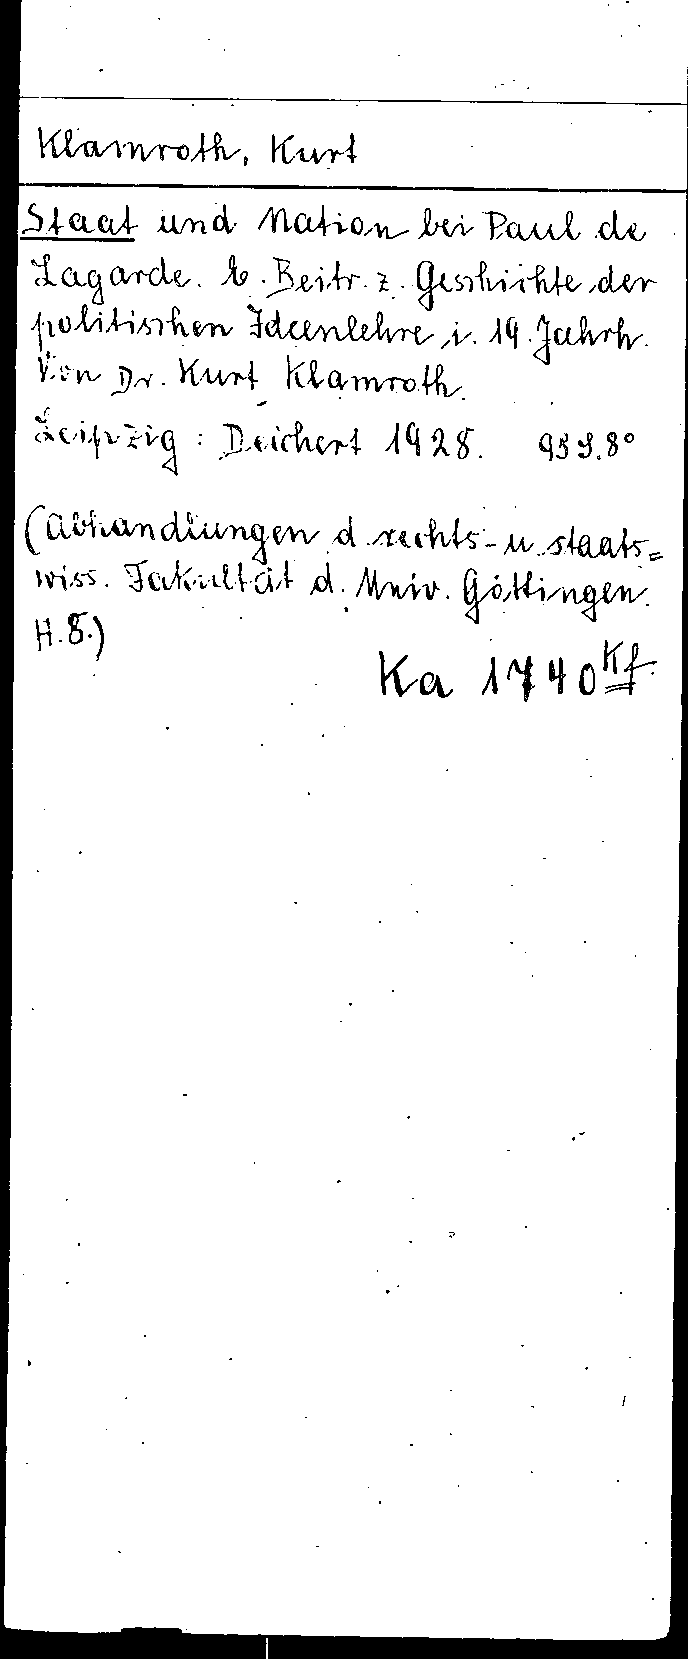 Klamroth, Kurt
Staat und Nation bei Paul de
Lagarde. E. Beitr. z. Geschichte der
politischen Ideenlehre i. 19. Jahrh.
Von Dr. Kurt Klamroth.
Leipzig: Deichert 1928. 95 S. 8°
(Abhandlungen d. rechts- u. staats=
wiss. Fakultät d. Univ. Göttingen.
H. 8.)
Ka 1740 Kf